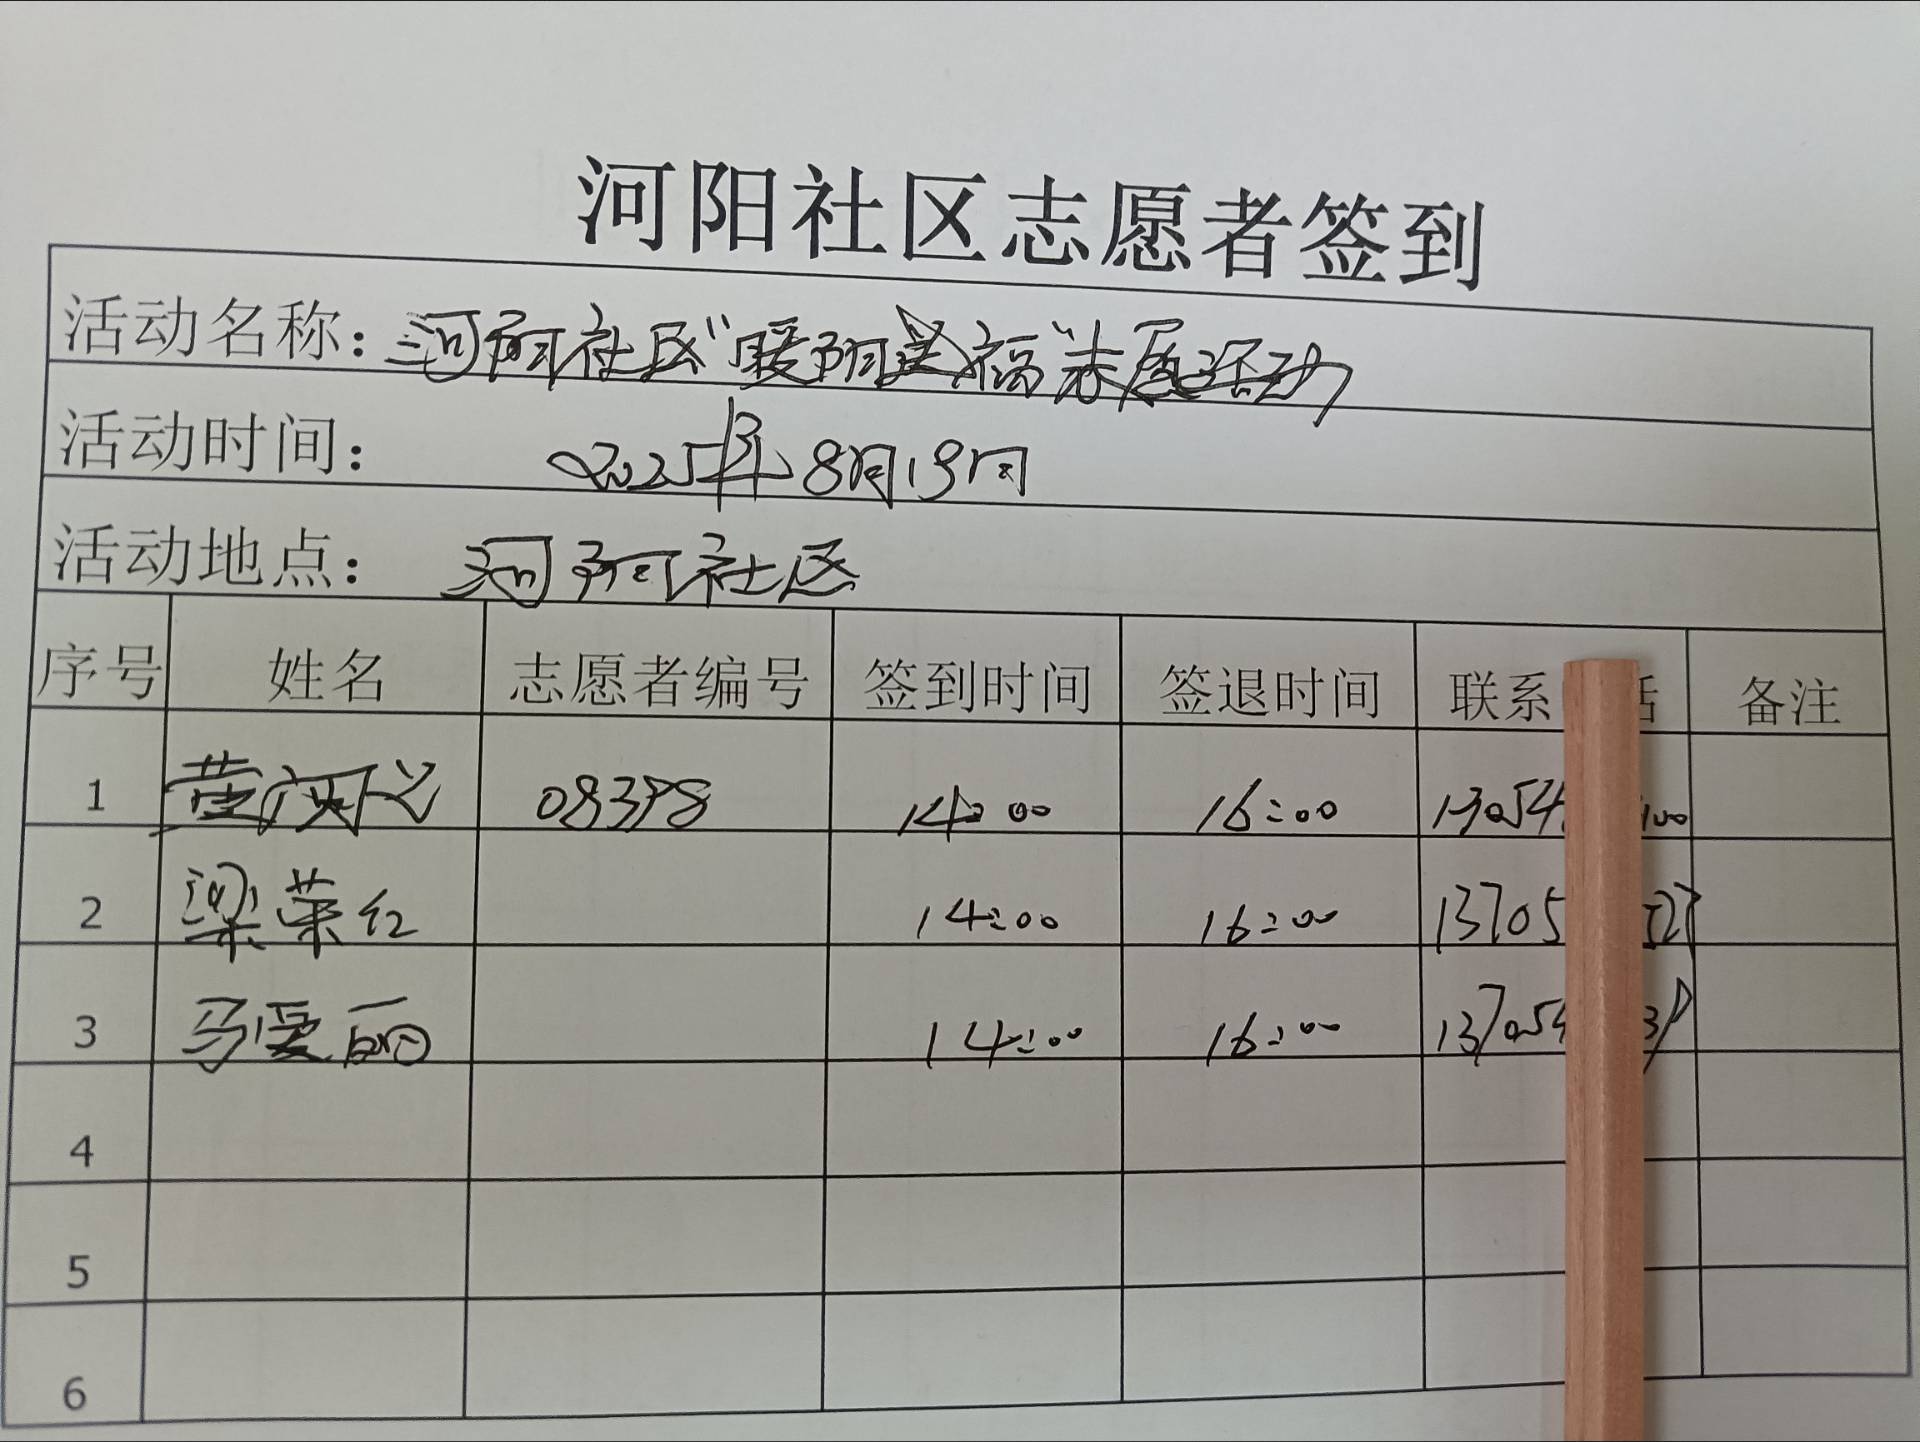 河阳社区志愿者签到
活动名称：河阳社区“暖阳送福”志愿活动
活动时间：2025年8月19日
活动地点：河阳社区
序号 姓名 志愿者编号 签到时间 签退时间 联系 话 备注
1 08398 14:00 16:00 13054 100
2 梁荣红 14:00 16:00 13705
3 马爱丽 14:00 16:00 137054
4
5
6